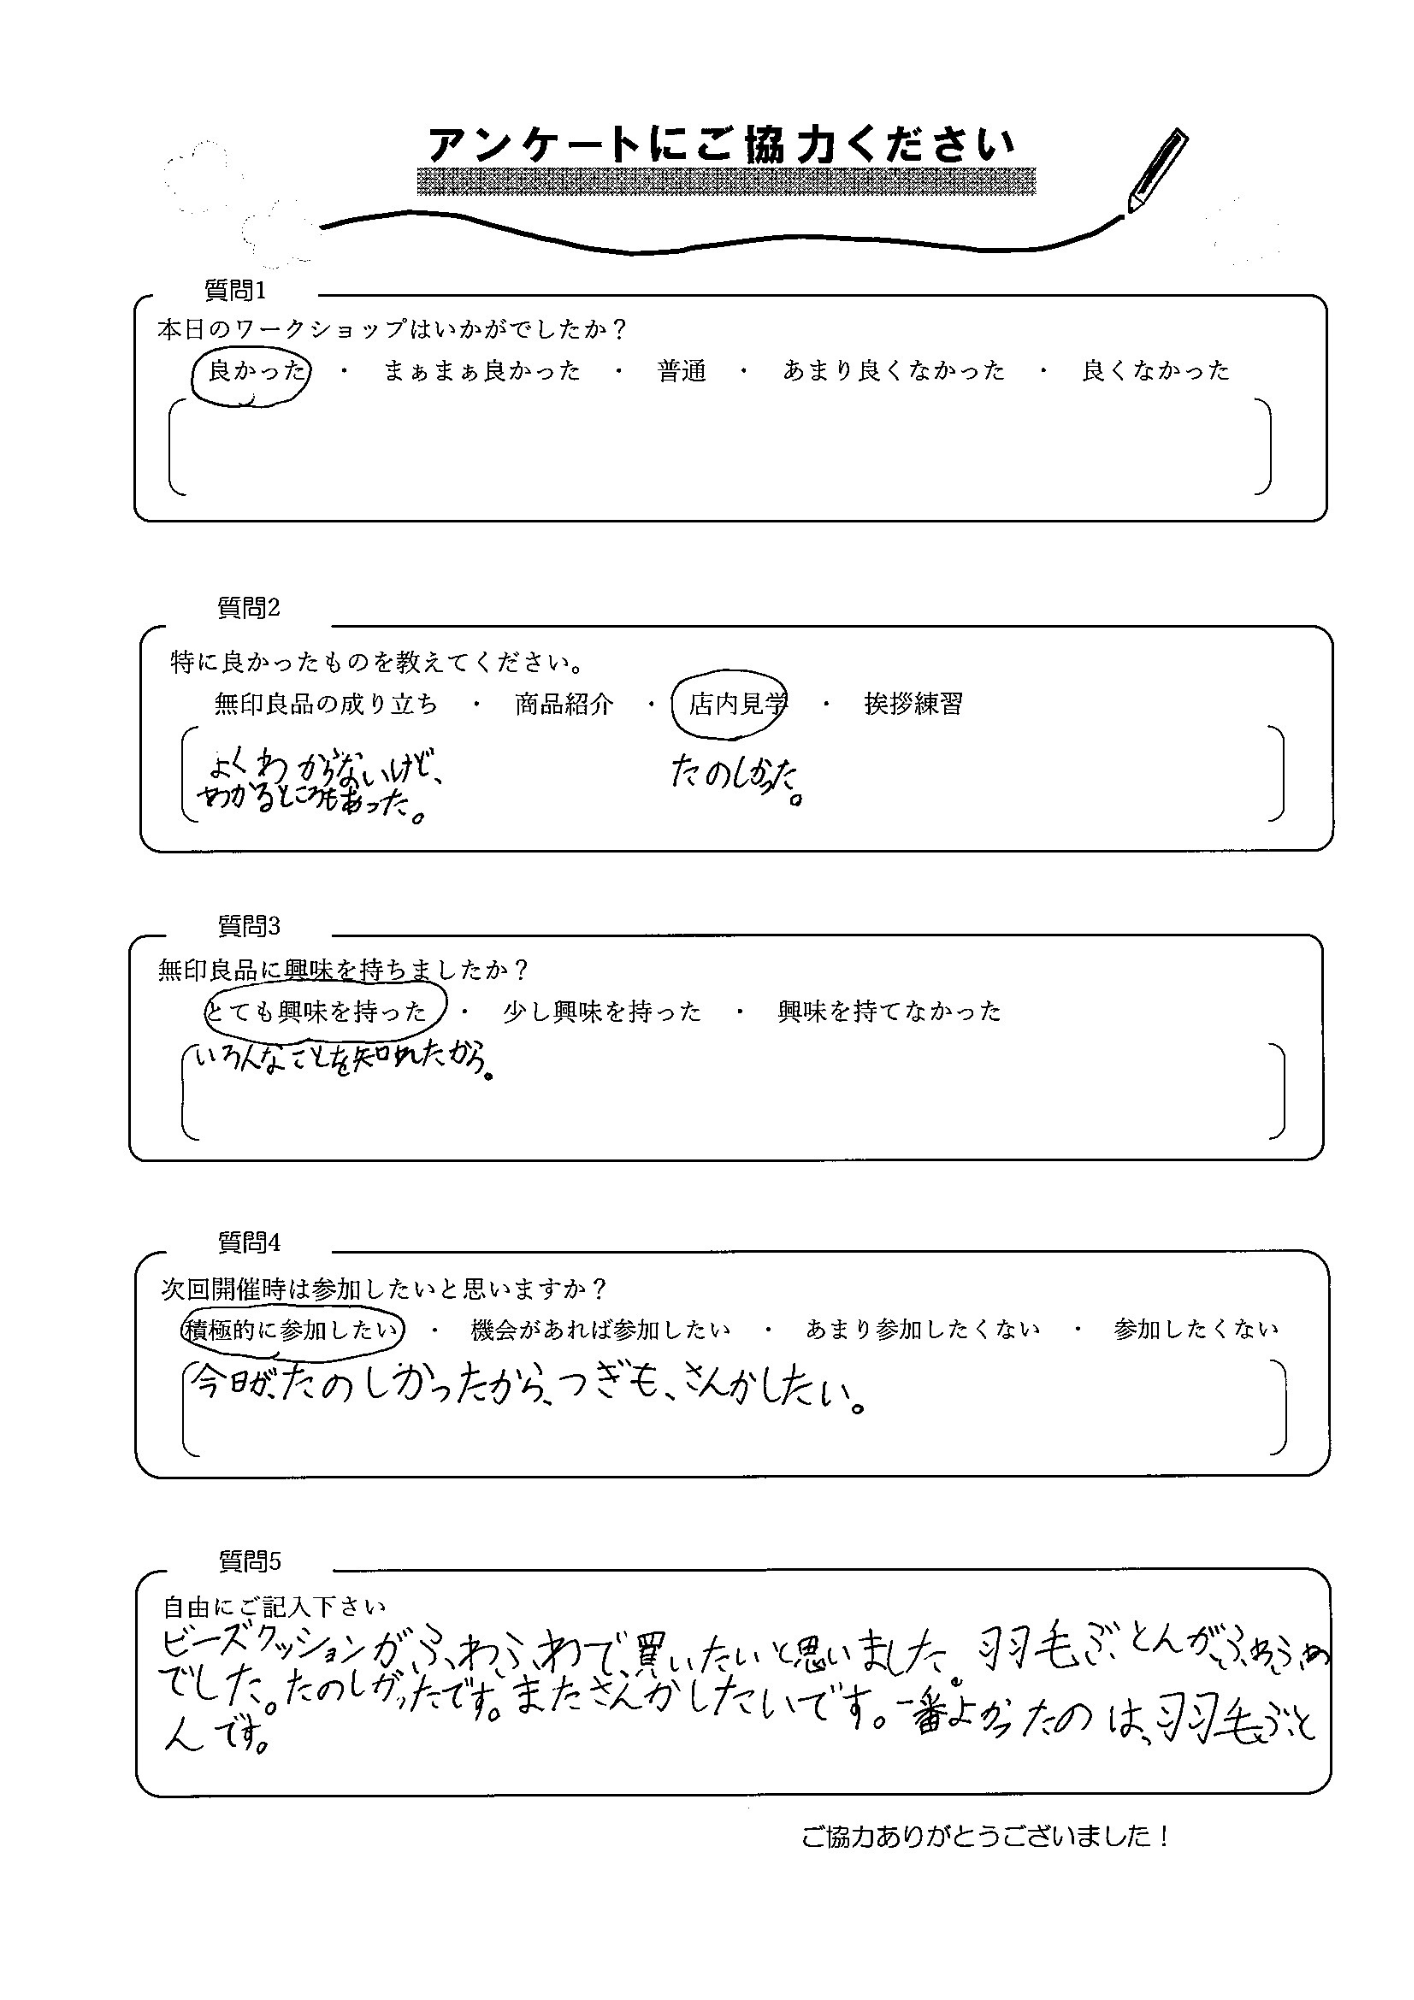 アンケートにご協力ください
質問1
本日のワークショップはいかがでしたか？
良かった ・ まぁまぁ良かった ・ 普通 ・ あまり良くなかった ・ 良くなかった
質問2
特に良かったものを教えてください。
無印良品の成り立ち ・ 商品紹介 ・ 店内見学 ・ 挨拶練習
よくわからないけど、 たのしかった。
わかるところもあった。
質問3
無印良品に興味を持ちましたか？
とても興味を持った ・ 少し興味を持った ・ 興味を持てなかった
いろんなことを知れたから。
質問4
次回開催時は参加したいと思いますか？
積極的に参加したい ・ 機会があれば参加したい ・ あまり参加したくない ・ 参加したくない
今日が、たのしかったから、つぎも、さんかしたい。
質問5
自由にご記入下さい
ビーズクッションがふわふわで、買いたいと思いました。羽毛ぶとんが、ふわふわ
でした。たのしかったです。またさんかしたいです。一番よかったのは、羽毛ぶと
んです。
ご協力ありがとうございました！